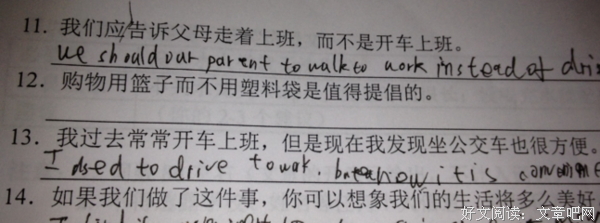 11. 我们应告诉父母走着上班，而不是开车上班。
we should our parent to walk to work instead of
12. 购物用篮子而不用塑料袋是值得提倡的。
13. 我过去常常开车上班，但是现在我发现坐公交车也很方便。
I used to drive to wok. now it is
14. 如果我们做了这件事，你可以想象我们的生活将多么美好
好文阅读：文章吧网